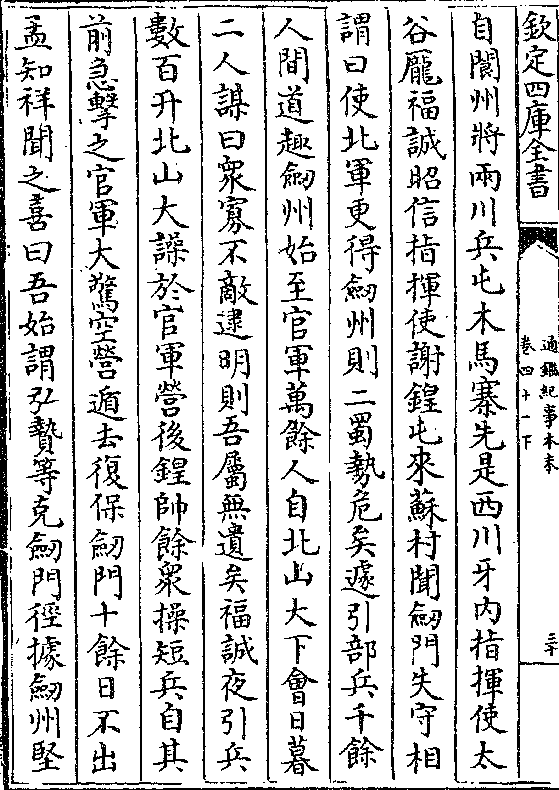 欽定四庫全書
通鑑紀事本末
卷四十一下
三十
自閬州將兩川兵屯木馬寨先是西川牙內指揮使太
谷龐福誠昭信指揮使謝鍠屯來蘇村聞劒門失守相
謂曰使北軍更得劒州則二蜀勢危矣遽引部兵千餘
人間道趣劒州始至官軍萬餘人自北山大下會日暮
二人謀曰衆寡不敵逮明則吾屬無遺矣福誠夜引兵
數百升北山大譟於官軍營後鍠帥餘衆操短兵自其
前急擊之官軍大驚空營遁去復保劒門十餘日不出
孟知祥聞之喜曰吾始謂弘贄等克劒門徑據劒州堅